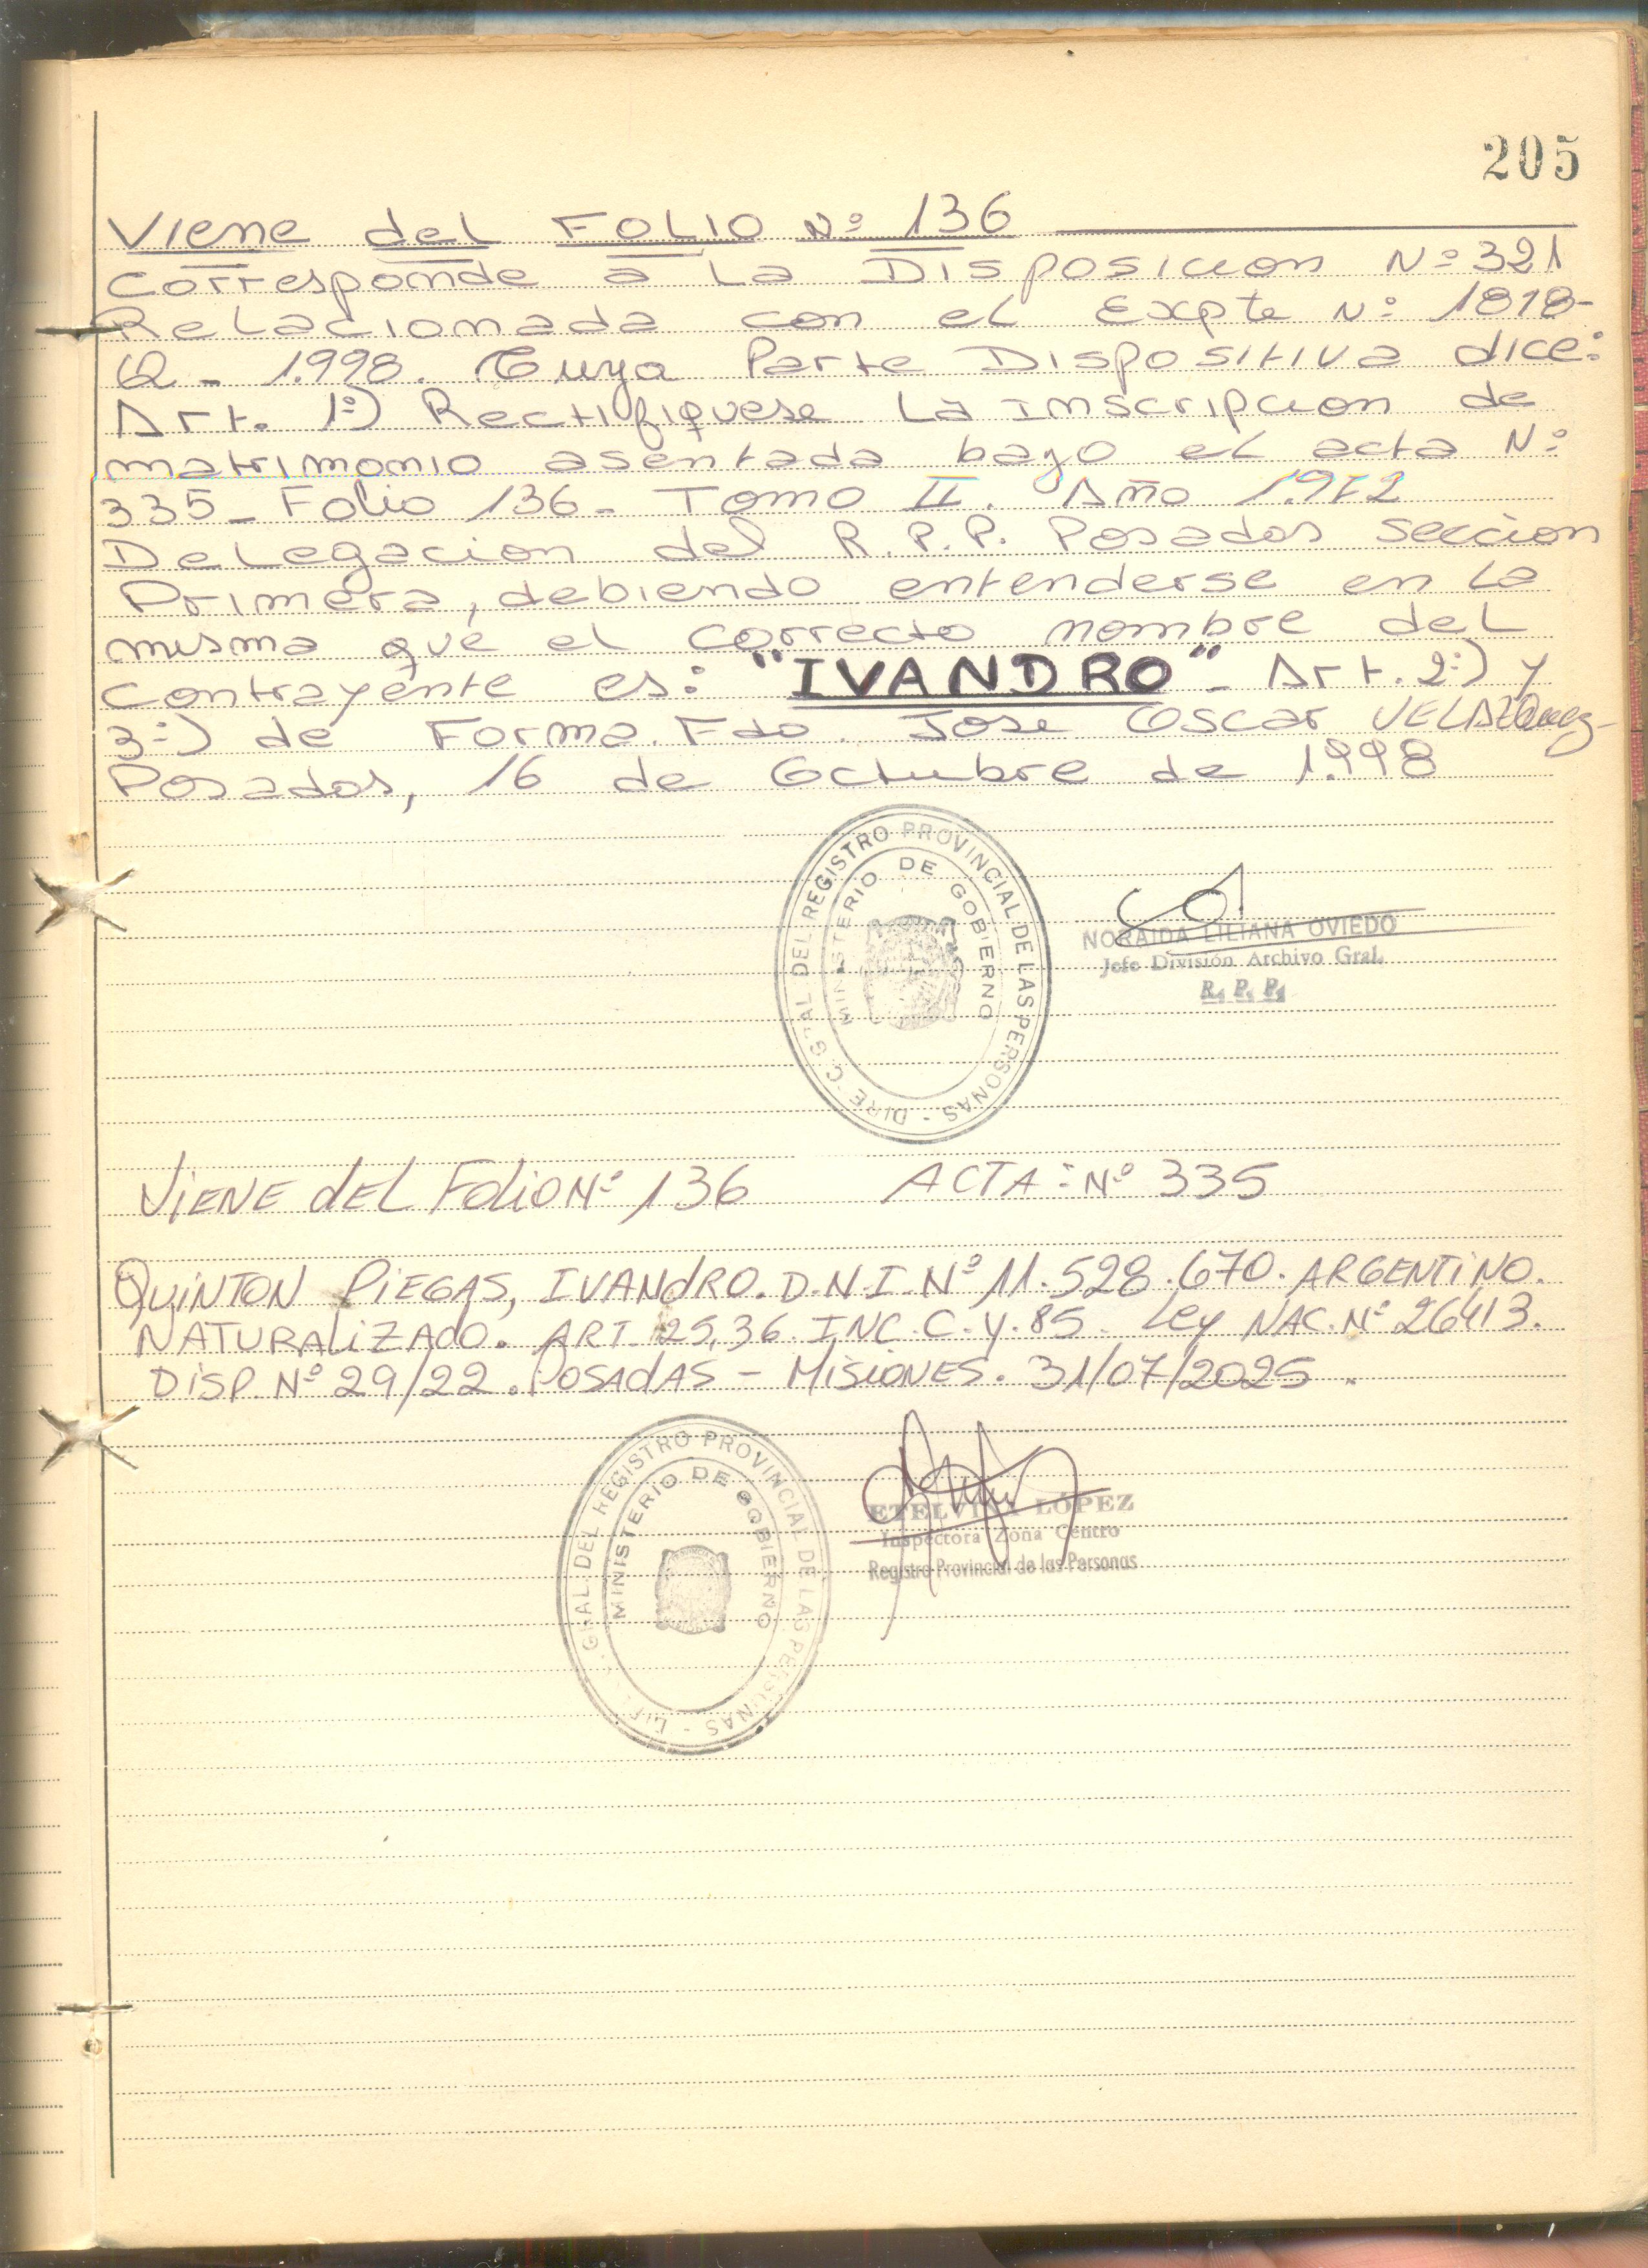 205
Viene del FOLIO Nº 136
Corresponde a La Disposicion Nº 321
Relacionada con el Expte Nº 1818-
Q - 1.998. Cuya Parte Dispositiva dice:
Art. 1º) Rectifiquese La inscripcion de
matrimonio asentada bajo el acta Nº
335 - Folio 136 - Tomo II. Año 1.972
Delegacion del R.P.P. Posadas seccion
Primera, debiendo entenderse en La
misma que el correcto nombre del
contrayente es: "IVANDRO" - Art. 2º) y
3º) de Forma. Fdo. Jose Oscar VELAZQuez -
Posadas, 16 de Octubre de 1.998
DIREC. GRAL DEL REGISTRO PROVINCIAL DE LAS PERSONAS -
MINISTERIO DE GOBIERNO
NORAIDA LILIANA OVIEDO
Jefe División Archivo Gral.
R. P. P.
VIENE dEL FoliO Nº 136 ACTA: Nº 335
QUINTON PIEGAS, IVANdRO. D.N.I. Nº 11.528.670. ARGENTINO.
NATURALIZADO. ART. 25, 36. INC. C. y. 85. Ley NAC. Nº 26413.
DISP. Nº 29/22. POSADAS - MISIONES. 31/07/2025.
GRAL DEL REGISTRO PROVINCIAL DE LAS PERSONAS -
MINISTERIO DE GOBIERNO
ETELVINA LÓPEZ
Inspectora Zona Centro
Registro Provincial de las Personas